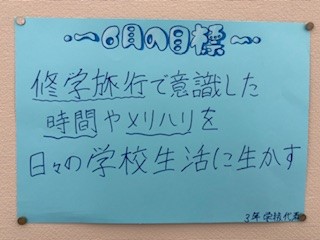 6月の目標
修学旅行で意識した
時間やメリハリを
日々の学校生活に生かす
3年 学級代表